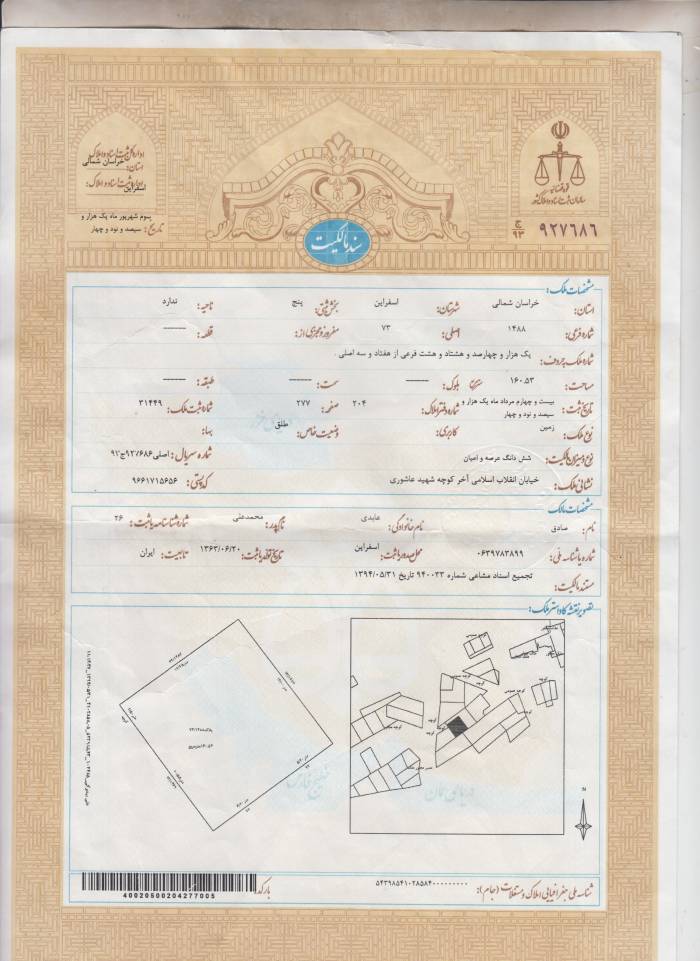 قوه قضائیه
سازمان ثبت اسناد و املاک کشور
۹۲۷۶۸۶ ج ۹۳
سند مالکیت
اداره کل ثبت اسناد و املاک
استان: خراسان شمالی
اداره ثبت اسناد و املاک: اسفراین
تاریخ: سوم شهریور ماه یک هزار و سیصد و نود و چهار
مشخصات ملک:
استان: خراسان شمالی شهرستان: اسفراین بخش ثبتی: پنج ناحیه: ندارد
شماره فرعی: ۱۴۸۸ اصلی: ۷۳ مفروز و مجزی از: ------ قطعه: ------
شماره ملک بحروف: یک هزار و چهارصد و هشتاد و هشت فرعی از هفتاد و سه اصلی .
مساحت: ۱۶۰.۵۳ مترمربع بلوک: ------ سمت: ------ طبقه: ------
تاریخ ثبت: بیست و چهارم مرداد ماه یک هزار و سیصد و نود و چهار شماره دفتر املاک: ۲۰۴ صفحه: ۲۷۷ شماره ثبت ملک: ۳۱۴۴۹
نوع ملک: زمین کاربری: وضعیت خاص: طلق بهاء:
نوع و میزان مالکیت: شش دانگ عرصه و اعیان شماره سریال: اصلی۹۲۷۶۸۶ج۹۳
نشانی ملک: خیابان انقلاب اسلامی آخر کوچه شهید عاشوری کد پستی: ۹۶۶۱۷۱۵۶۵۶
مشخصات مالک
نام: صادق نام خانوادگی: عابدی نام پدر: محمدعلی شماره شناسنامه یا ثبت: ۲۶
شماره یا شناسه ملی: ۰۶۳۹۷۸۳۸۹۹ محل صدور یا ثبت: اسفراین تاریخ تولد یا ثبت: ۱۳۶۳/۰۶/۲۰ تابعیت: ایران
مستند مالکیت: تجمیع اسناد مشاعی شماره ۹۴۰۰۳۳ تاریخ ۱۳۹۴/۰۵/۳۱
تصویر نقشه کاداستر ملک:
N
خلیج فارس
دریای عمان
شناسه ملی جغرافیایی املاک و مستغلات (جام): ۵۴۳۹۸۵۴۱۰۲۸۵۸۴۰۰۰۰۰۰۰۰۰
بارکد
40020500204277005